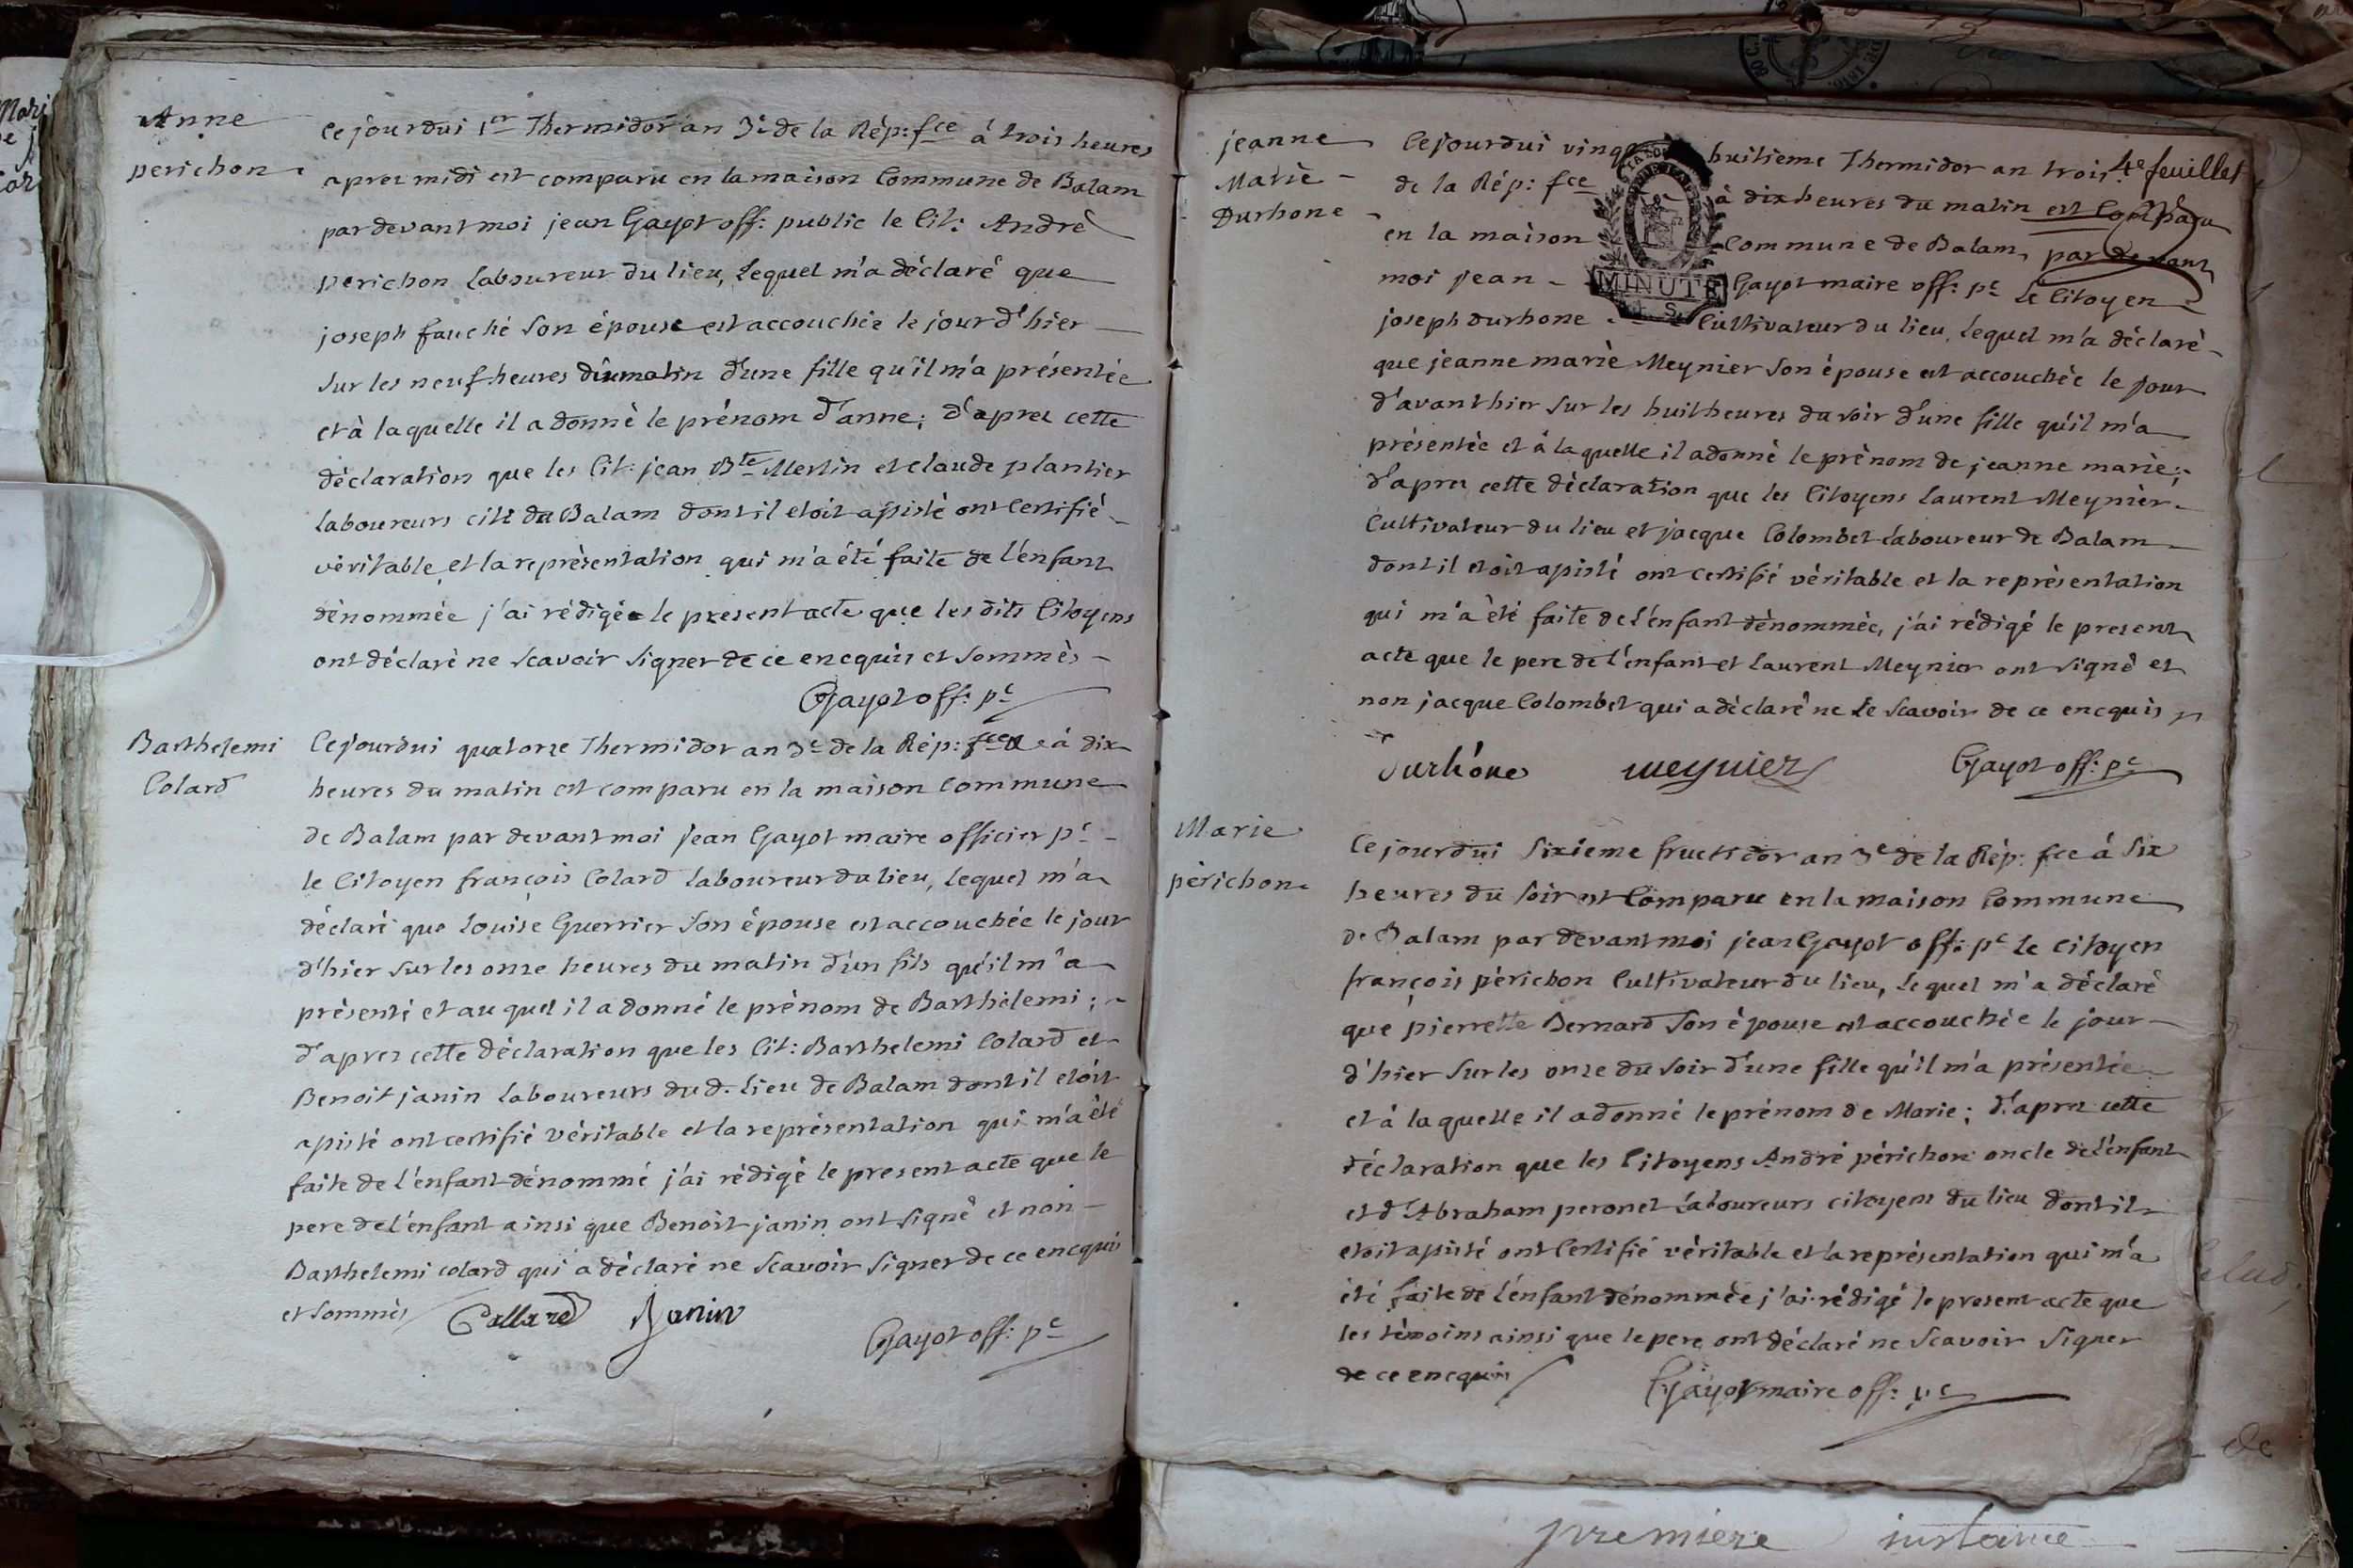 Anne
perichon
Cejourdui 1er Thermidor an 3e de la Rép: fce à trois heures
apres midi est comparu en la maison Commune de Balam
pardevant moi jean Gayot off: public le Cit: André
perichon Laboureur du lieu, Lequel m'a déclaré que
joseph fauché Son épouse est accouchée le jour d'hier
Sur les neuf heures du matin d'une fille qu'il m'a présentée
et à laquelle il a donné le prénom d'anne; d'apres cette
déclaration que les Cit: jean Bte Merlin et claude plantier
laboureurs cite de Balam dont il etoit assisté ont Certifié
véritable et la représentation qui m'a été faite de l'énfant
dénommée j'ai rédigée le present acte que les dits Citoyens
ont déclaré ne Scavoir Signer de ce encquis et Sommès
Gayot off: pc
Barthelemi
Colard
Cejourdui quatorze Thermidor an 3e de la Rép: fce à dix
heures du matin est comparu en la maison Commune
de Balam par devant moi jean Gayot maire officier pc
le Citoyen françois Colard laboureur du lieu, lequel m'a
déclaré que Louise Guerrier Son épouse est accouchée le jour
d'hier Sur les onze heures du matin d'un fils qu'il m'a
présenté et auquel il a donné le prénom de Barthélemi;
d'apres cette déclaration que les Cit: Barthelemi Colard et
Benoit janin Laboureurs dud. Lieu de Balam dont il etoit
assisté ont certifié véritable et la représentation qui m'a été
faite de l'énfant dénommé j'ai rédigé le present acte que le
pere de l'énfant ainsi que Benoit janin ont Signé et non
Barthelemi colard qui a déclaré ne Scavoir Signer de ce encquis
et Sommès Collard Janin
Gayot off: pc
4e feuillet
jeanne
Marie
Durhone
Cejourdui vingt huitieme Thermidor an trois
de la Rép: fce à dix heures du matin est Comparu
en la maison Commune de Balam, par devant
moi jean Gayot maire off: pc Le Citoyen
joseph durhone Cultivateur du lieu, Lequel m'a déclaré
que jeanne marie Meynier Son épouse est accouchée le jour
d'avant hier Sur les huit heures du soir d'une fille qu'il m'a
présentée et à laquelle il a donné le prénom de jeanne marie;
d'apres cette déclaration que les Citoyens Laurent Meynier
Cultivateur du lieu et jacque Colombet Laboureur de Balam
dont il etoit assisté ont certifié véritable et la représentation
qui m'a été faite de l'énfant dénommée, j'ai rédigé le present
acte que le pere de l'énfant et Laurent Meynier ont Signé et
non jacque Colombet qui a déclaré ne Le Scavoir de ce encquis
Durhône meynier Gayot off: pc
Marie
périchon
Ce jourdui Sixieme fructidor an 3e de la Rép: fce à Six
heures du Soir est Comparu en la maison Commune
de Balam par devant moi jean Gayot off: pc Le citoyen
françois périchon Cultivateur du lieu, Lequel m'a déclaré
que pierrette Bernard Son épouse est accouchée le jour
d'hier Sur les onze du Soir d'une fille qu'il m'a présentée
et à laquelle il a donné le prénom de Marie; d'apres cette
déclaration que les Citoyens André périchon oncle de l'énfant
et d'Abraham peronet Laboureurs citoyens du lieu dont il
etoit assisté ont Certifié véritable et la représentation qui m'a
été faite de l'énfant dénommée j'ai rédigé le present acte que
les témoins ainsi que le pere ont déclaré ne Scavoir Signer
de ce encquis Gayot maire off: pc
MINUTE
premiere instance
de